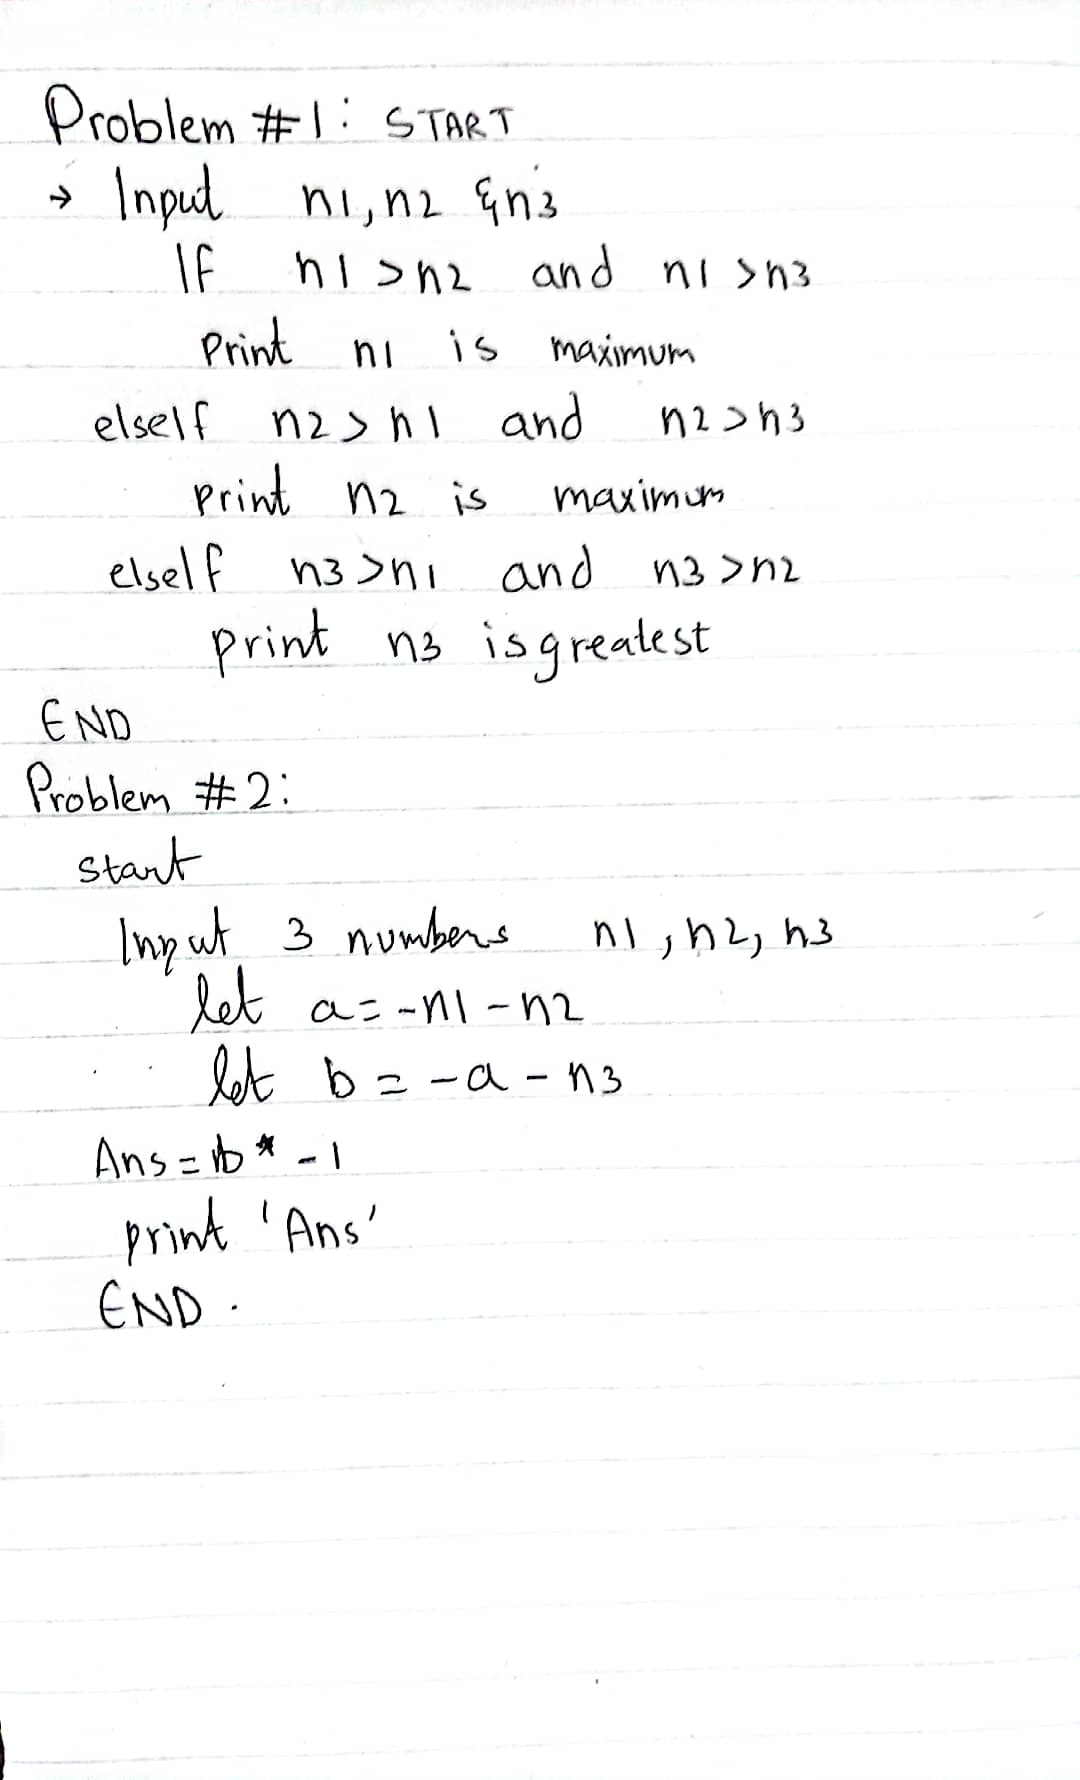 Problem #1: START
→ Input n1, n2 & n3
If n1 > n2 and n1 > n3
Print n1 is maximum
elseIf n2 > n1 and n2 > n3
Print n2 is maximum
elseIf n3 > n1 and n3 > n2
print n3 is greatest
END
Problem #2:
start
Input 3 numbers n1, n2, n3
let a = -n1 - n2
let b = -a - n3
Ans = b * -1
print 'Ans'
END.